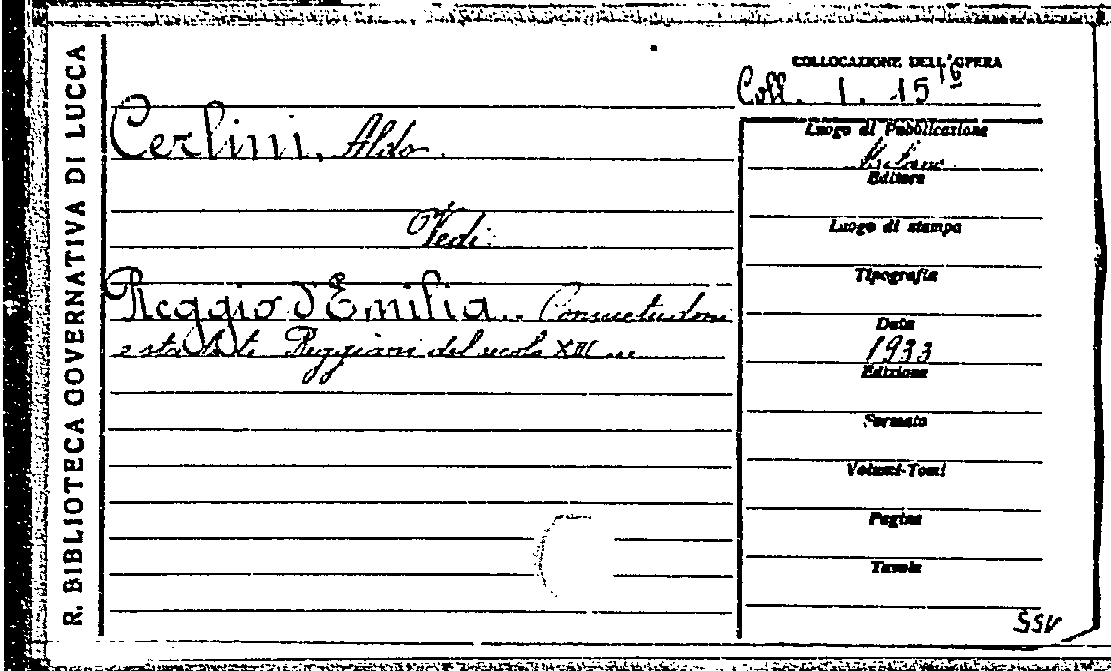 R. BIBLIOTECA GOVERNATIVA DI LUCCA
COLLOCAZIONE DELL'OPERA
Coll. 1. 15 16
Cerlini, Aldo.
Vedi:
Reggio d'Emilia. Consuetudini
e statuti Reggiani del secolo XIII
Luogo di Pubblicazione
Milano
Editore
Luogo di stampa
Tipografia
Data
1933
Edizione
Formato
Volumi-Tomi
Pagine
Tavole